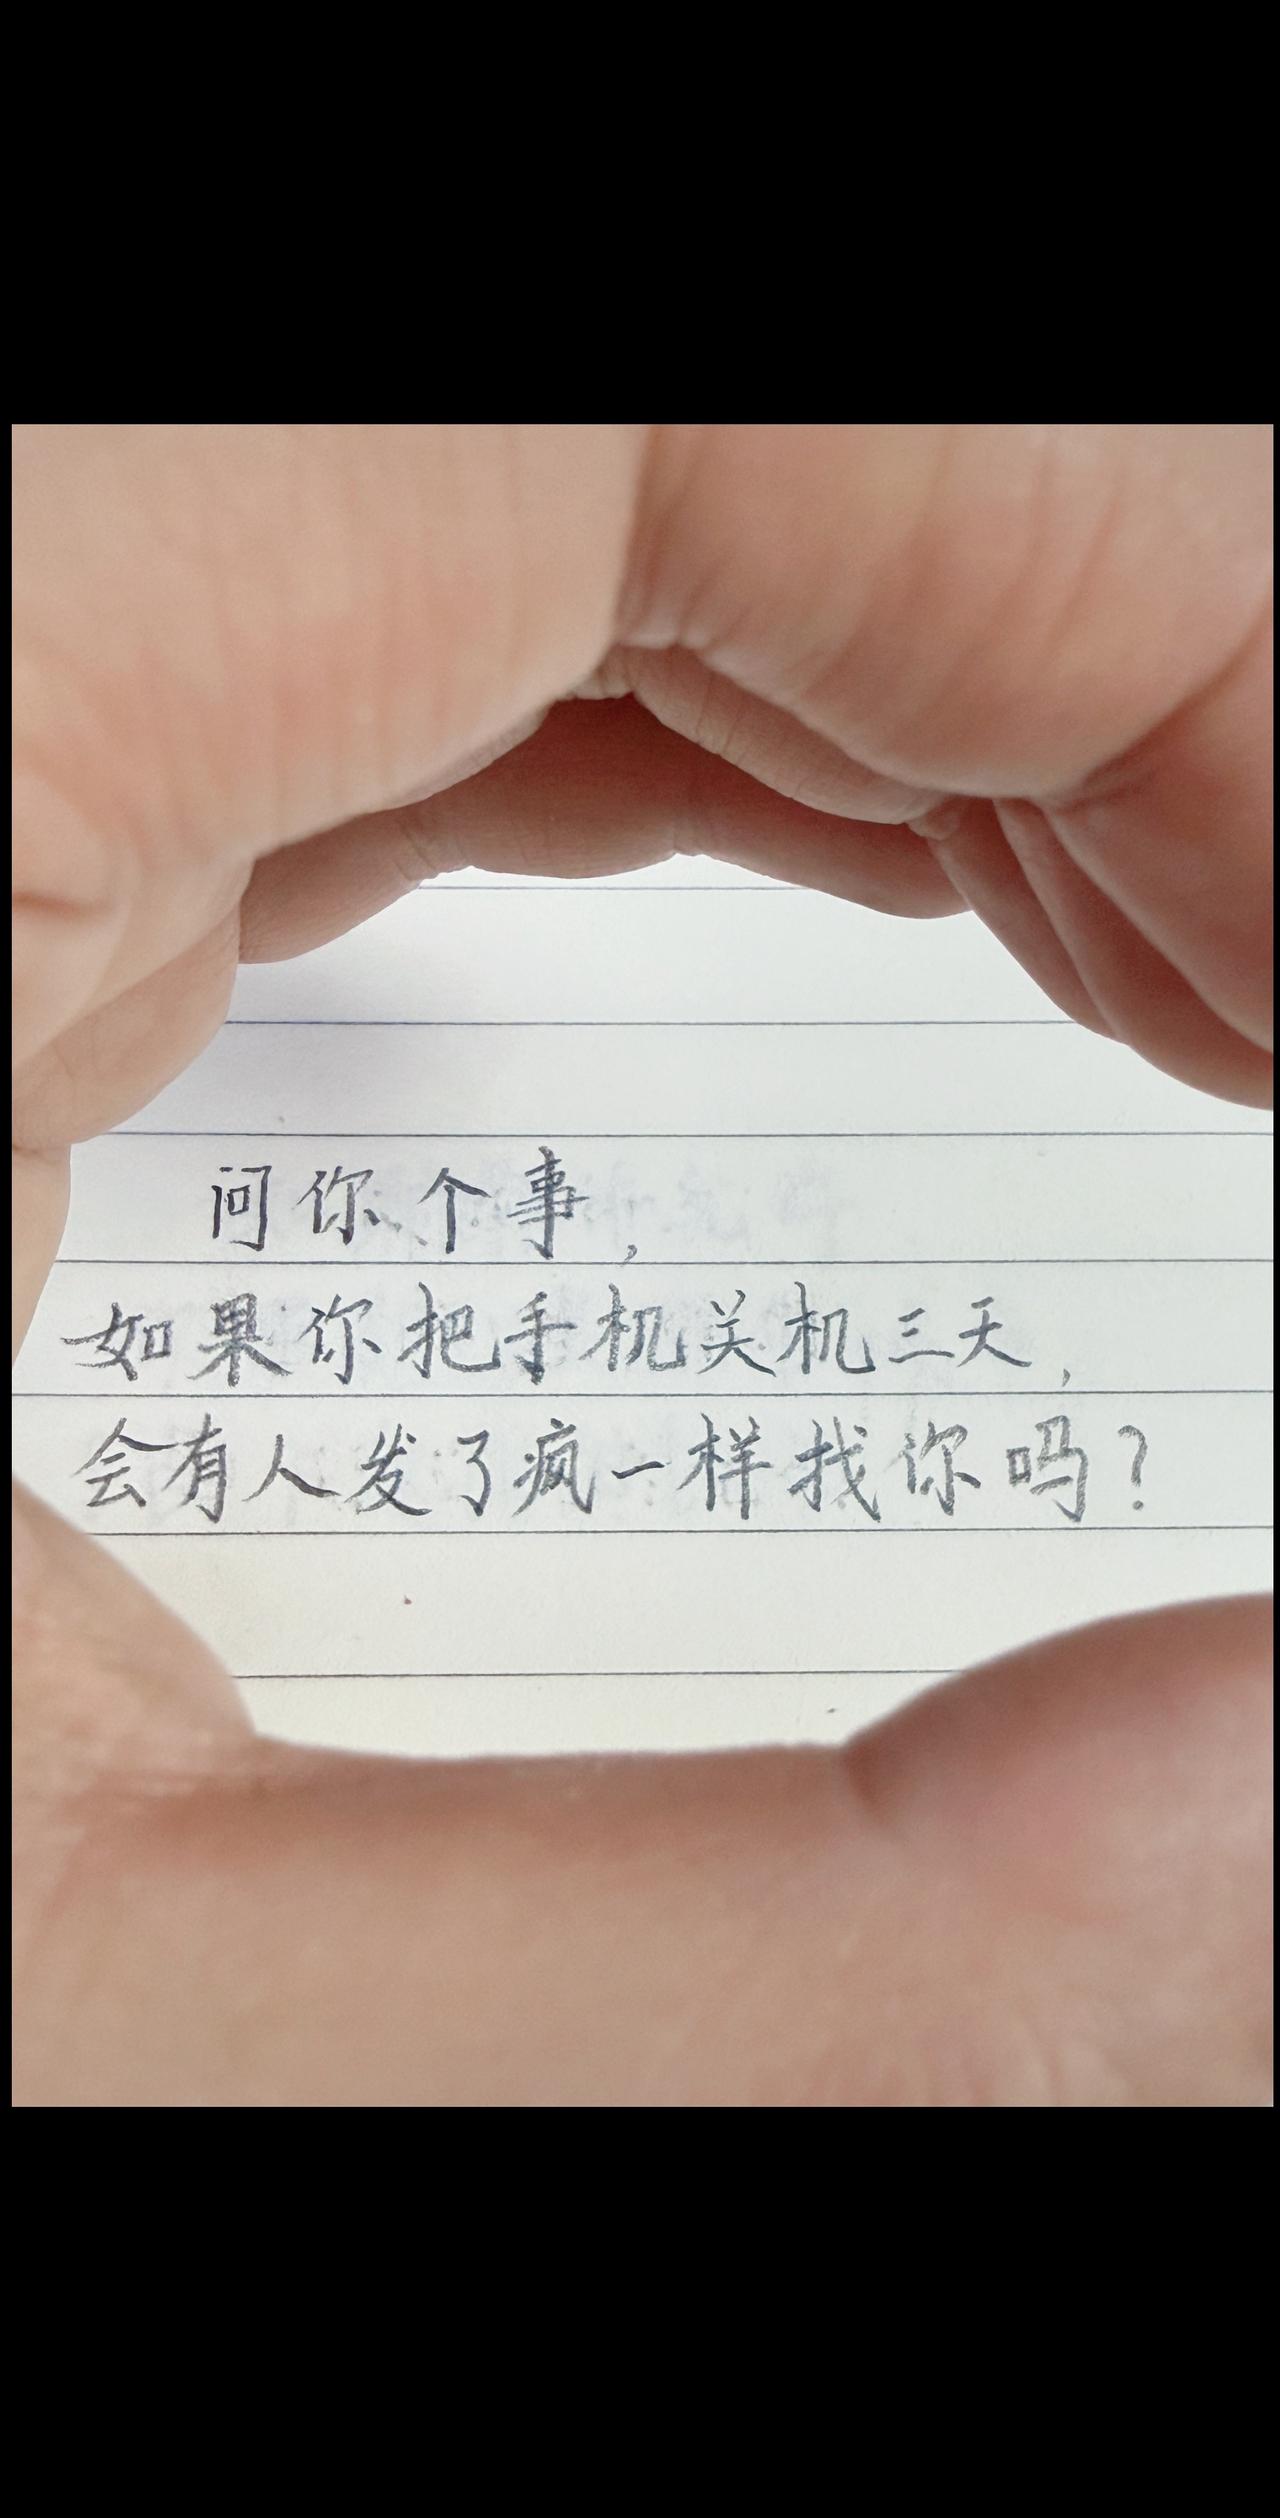 问你个事，
如果你把手机关机三天，
会有人发了疯一样找你吗？